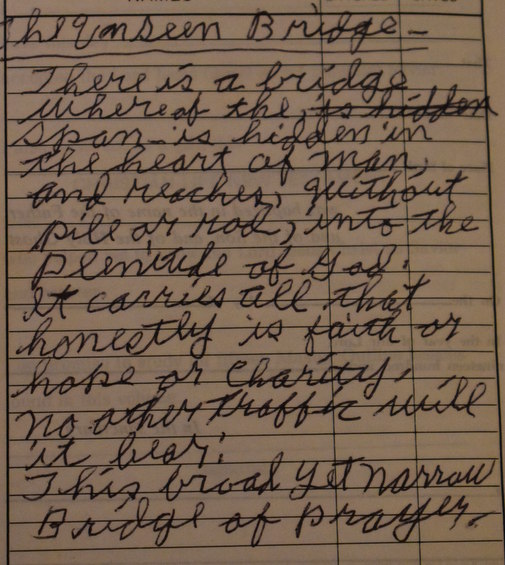 The Unseen Bridge -
There is a bridge
whereof the, is hidden
span - is hidden in
the heart of man,
and reaches, without
pile or rod, into the
plenitude of God.
It carries all that
honestly is faith or
hope or Charity,
no other traffic will
it bear:
This broad yet narrow
Bridge of prayer.